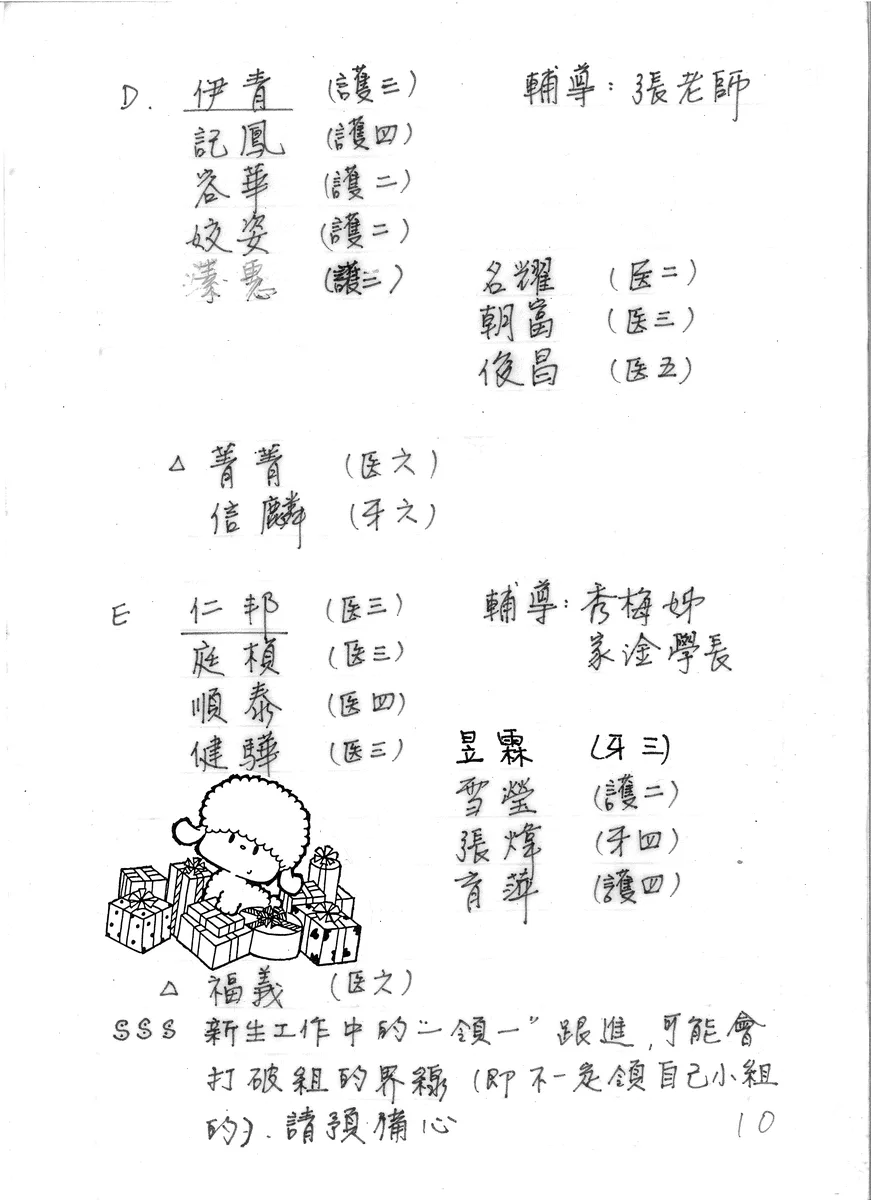 D. 伊青 (護三) 輔導: 張老師
記鳳 (護四)
容華 (護二)
姣姿 (護二)
蓁惠 (護二)
名耀 (医二)
朝富 (医三)
俊昌 (医五)
△ 菁菁 (医六)
信麟 (牙六)
E 仁邦 (医三) 輔導: 秀梅姊
庭楨 (医三) 家淦學長
順泰 (医四)
健驊 (医三) 昱霖 (牙三)
雪瑩 (護二)
張煒 (牙四)
育萍 (護四)
△ 福義 (医六)
SSS 新生工作中的“一領一”跟進,可能會
打破組的界線 (即不一定領自己小組
的). 請預備心
10